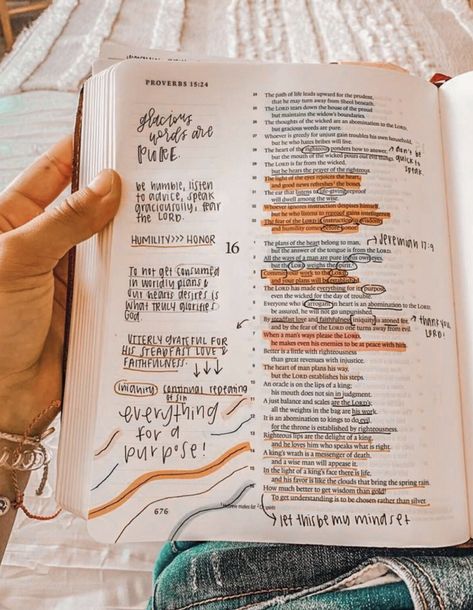 PROVERBS 15:24
glacious
words are
PURE.
be humble, listen
to advice, speak
graciously, fear
the LORD.
HUMILITY>>> HONOR
To not get consumed
in worldly plans &
our hearts desires is
what truly glorifies
God.
UTTERLY GRATEFUL FOR
HIS STEADFAST LOVE &
FAITHFULNESS.
iniquity: continual repeating
of sin
everything
for a
purpose!
676
24 The path of life leads upward for the prudent,
that he may turn away from Sheol beneath.
25 The LORD tears down the house of the proud
but maintains the widow's boundaries.
26 The thoughts of the wicked are an abomination to the LORD,
but gracious words are pure.
27 Whoever is greedy for unjust gain troubles his own household,
but he who hates bribes will live.
28 The heart of the righteous ponders how to answer,
but the mouth of the wicked pours out evil things.
don't be
quick to
speak
29 The LORD is far from the wicked,
but he hears the prayer of the righteous.
30 The light of the eyes rejoices the heart,
and good news refreshes the bones.
31 The ear that listens to life-giving reproof
will dwell among the wise.
32 Whoever ignores instruction despises himself,
but he who listens to reproof gains intelligence.
33 The fear of the LORD is instruction in wisdom,
and humility comes before honor.
16 The plans of the heart belong to man,
but the answer of the tongue is from the LORD.
Jeremiah 17:9
2 All the ways of a man are pure in his own eyes,
but the LORD weighs the spirit.
3 Commit your work to the LORD,
and your plans will be established.
4 The LORD has made everything for its purpose,
even the wicked for the day of trouble.
5 Everyone who is arrogant in heart is an abomination to the LORD;
be assured, he will not go unpunished.
6 By steadfast love and faithfulness iniquity is atoned for,
and by the fear of the LORD one turns away from evil.
thank you
LORD!
7 When a man's ways please the LORD,
he makes even his enemies to be at peace with him.
8 Better is a little with righteousness
than great revenues with injustice.
9 The heart of man plans his way,
but the LORD establishes his steps.
10 An oracle is on the lips of a king;
his mouth does not sin in judgment.
11 A just balance and scales are the LORD's;
all the weights in the bag are his work.
12 It is an abomination to kings to do evil,
for the throne is established by righteousness.
13 Righteous lips are the delight of a king,
and he loves him who speaks what is right.
14 A king's wrath is a messenger of death,
and a wise man will appease it.
15 In the light of a king's face there is life,
and his favor is like the clouds that bring the spring rain.
16 How much better to get wisdom than gold!
To get understanding is to be chosen rather than silver.
let this be my mindset